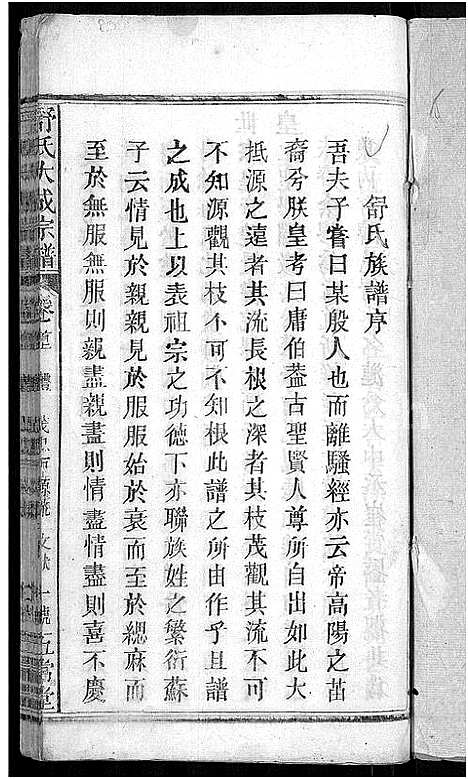 舒氏族譜序
吾夫子嘗曰某殷人也而離騷經亦云帝高陽之苗
裔兮朕皇考曰庸伯葢古聖賢人尊所自出如此大
抵源之遠者其流長根之深者其枝茂觀其流不可
不知源觀其枝不可不知根此譜之所由作乎且譜
之成也上以表祖宗之功德下亦聯族姓之繁衍蘇
子云情見於親親見於服服始於衰而至於緦麻而
至於無服無服則親盡親盡則情盡情盡則喜不慶
舒氏大成宗譜
卷之首